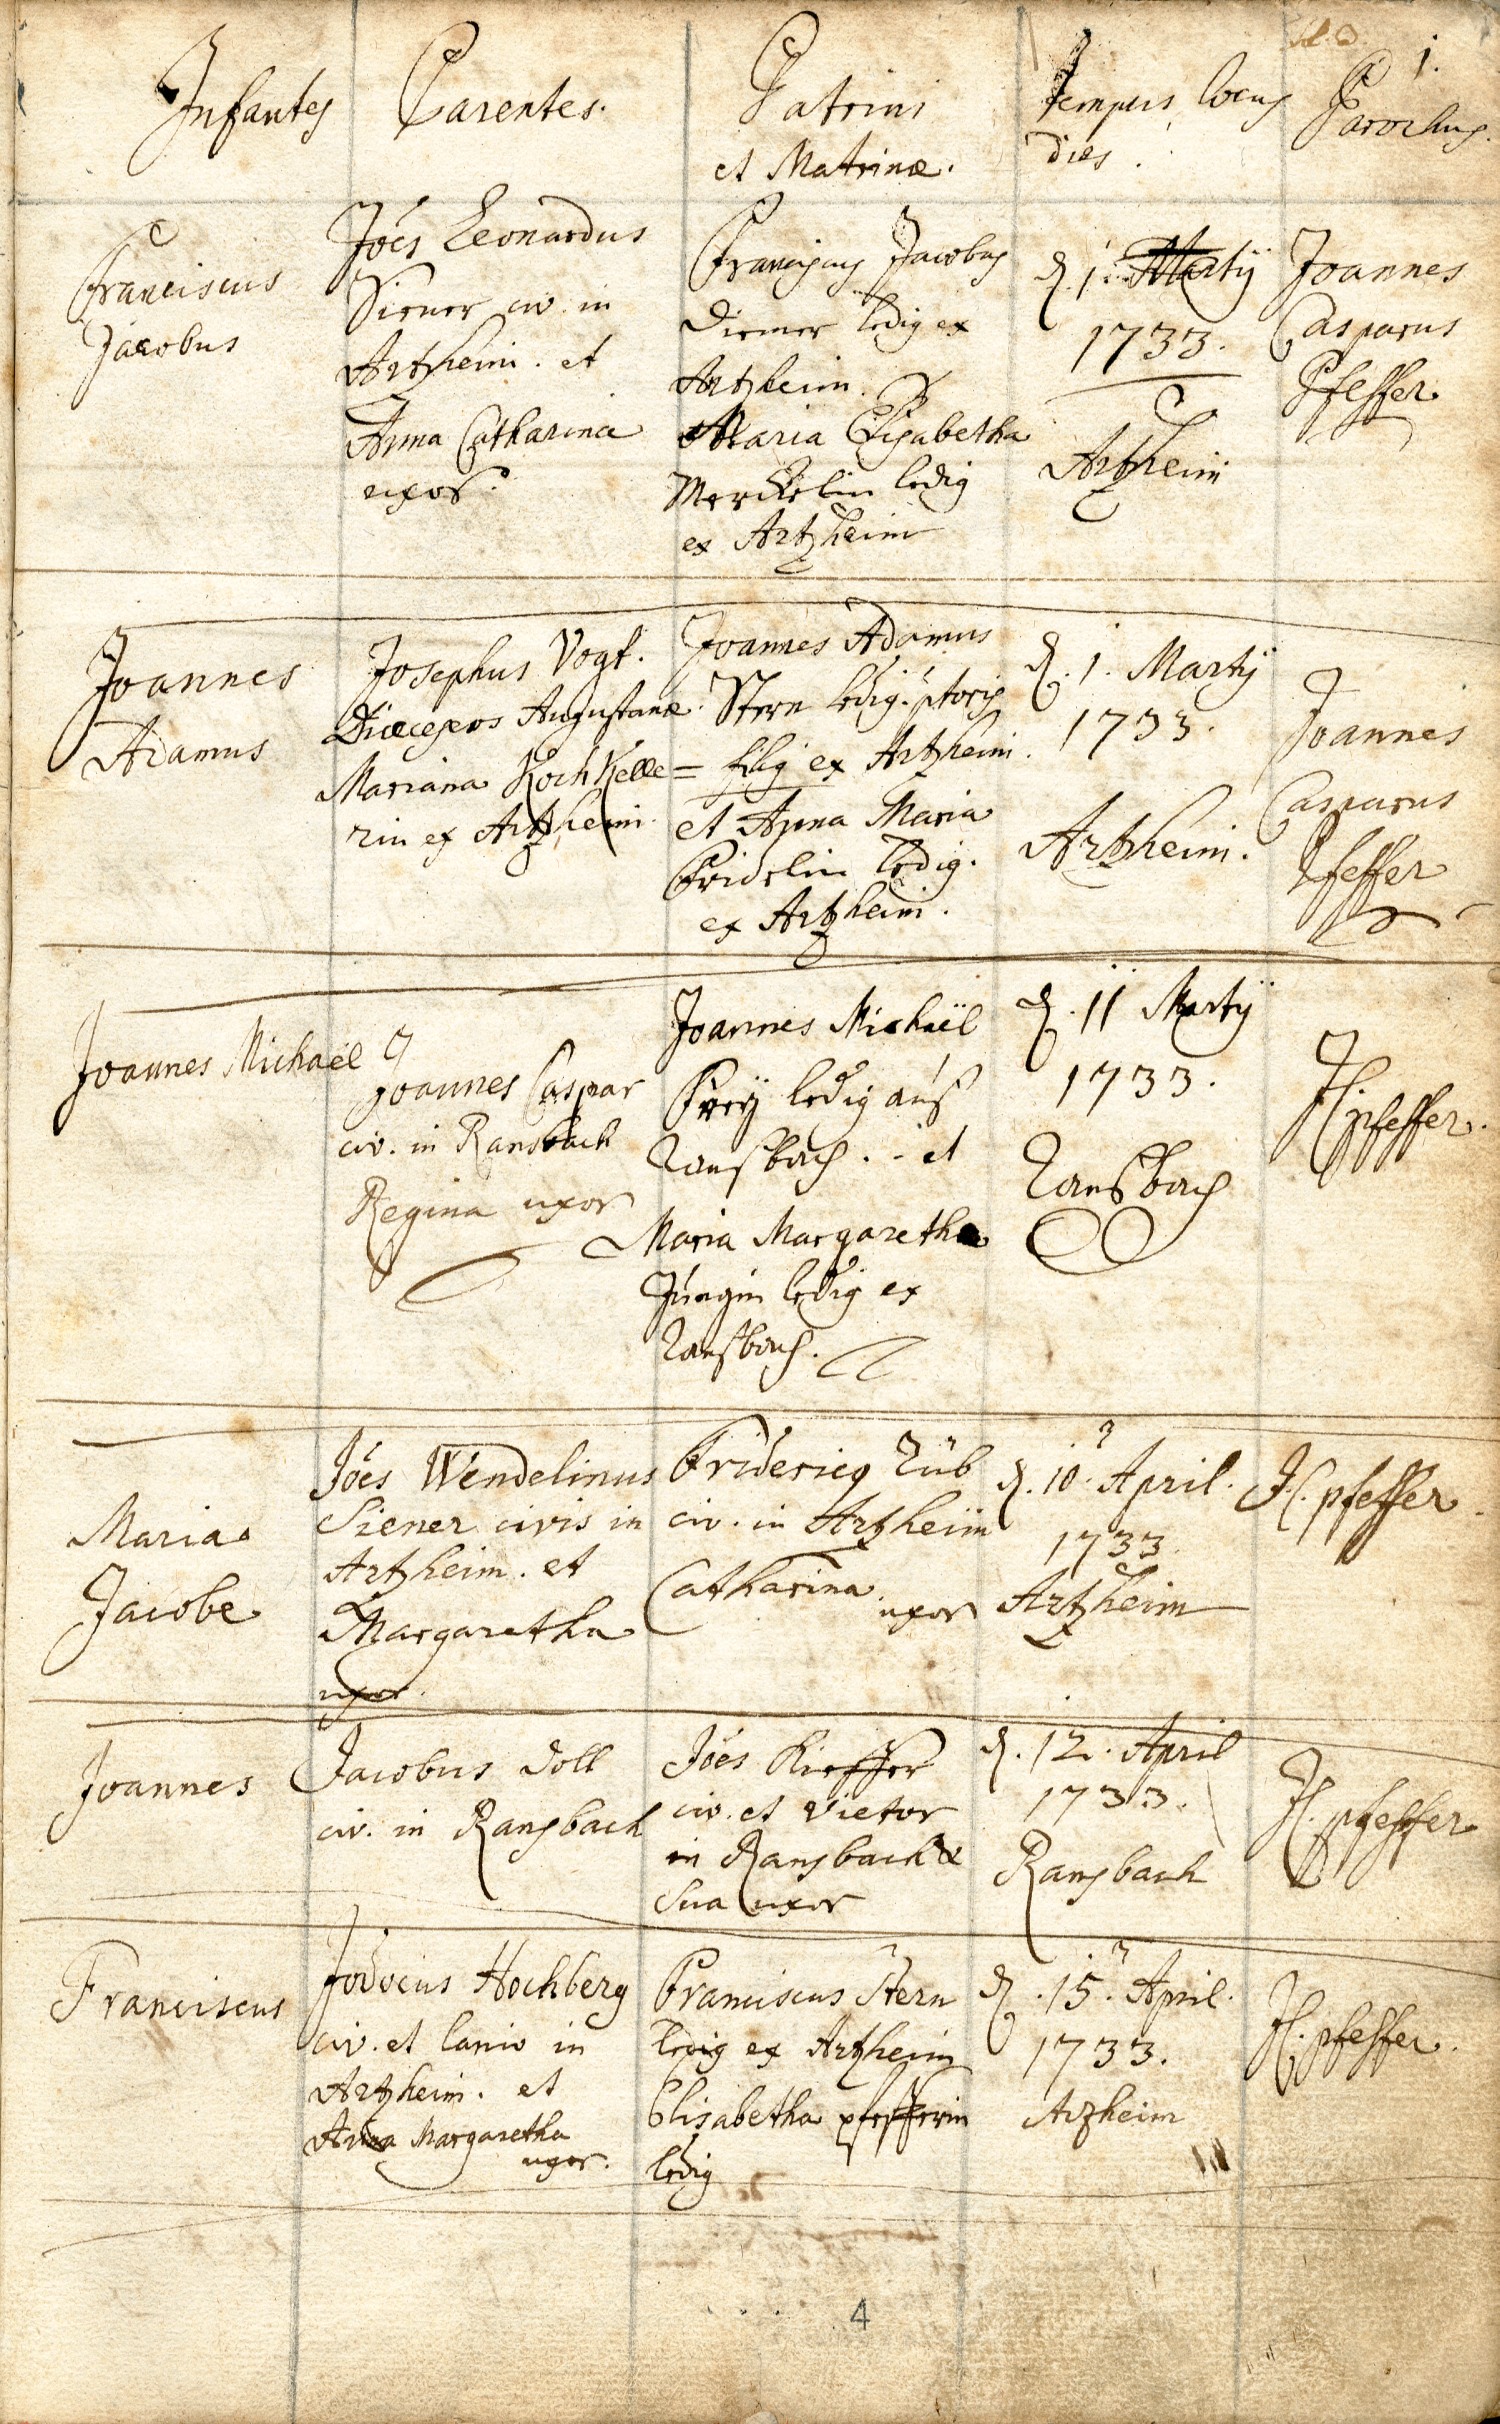 1.
Infantes
Parentes.
Patrini
et Matrinæ.
tempus locus
dies.
Parochus.
Franciscus
Jacobus
Jões Leonardus
Siener civ. in
Artzheim. et
Anna Catharina
uxor.
Franciscus Jacobus
Diemer ledig ex
Artzheim.
Maria Elisabetha
Merckelin ledig
ex Artzheim
d. 1. Martÿ
1733.
Artzheim
Joannes
Casparus
Pfeffer
Joannes
Adamus
Josephus Vogt.
Diœceseos Augustanæ.
Mariana Koch Kelle=
rin ex Artzheim.
Joannes Adamus
Stern ledig. ptoris
filius ex Artzheim.
et Anna Maria
Fridelin ledig.
ex Artzheim.
d. 1. Martÿ
1733.
Artzheim.
Joannes
Casparus
Pfeffer
Joannes Michaël
Joannes Caspar
civ. in Ransbach
Regina uxor
Joannes Michaël
Frey ledig auß
Ranßbach. et
Maria Margaretha
Jungin ledig ex
Ranßbach.
d. 11 Martÿ
1733.
Ranßbach
JC. pfeffer.
Maria
Jacobe
Jões Wendelinus
Siener civis in
Artzheim. et
Margaretha
uxor.
Friderieg Rüb
civ. in Artzheim
Catharina
uxor
d. 10. April.
1733.
Artzheim
J.C. pfeffer.
Joannes
Jacobus Doll
civ. in Ransbach
Jões Kieffer
civ. et vietor
in Ransbach &
sua uxor
d. 12. April
1733.
Ransbach
JC. pfeffer
Franciscus
Jodocus Hochberg
civ. et lanio in
Artzheim. et
Anna Margaretha
uxor.
Franciscus Stern
ledig ex Artzheim
Elisabetha pfefferin
ledig
d. 15. April.
1733.
Arzheim
JC. pfeffer.
4